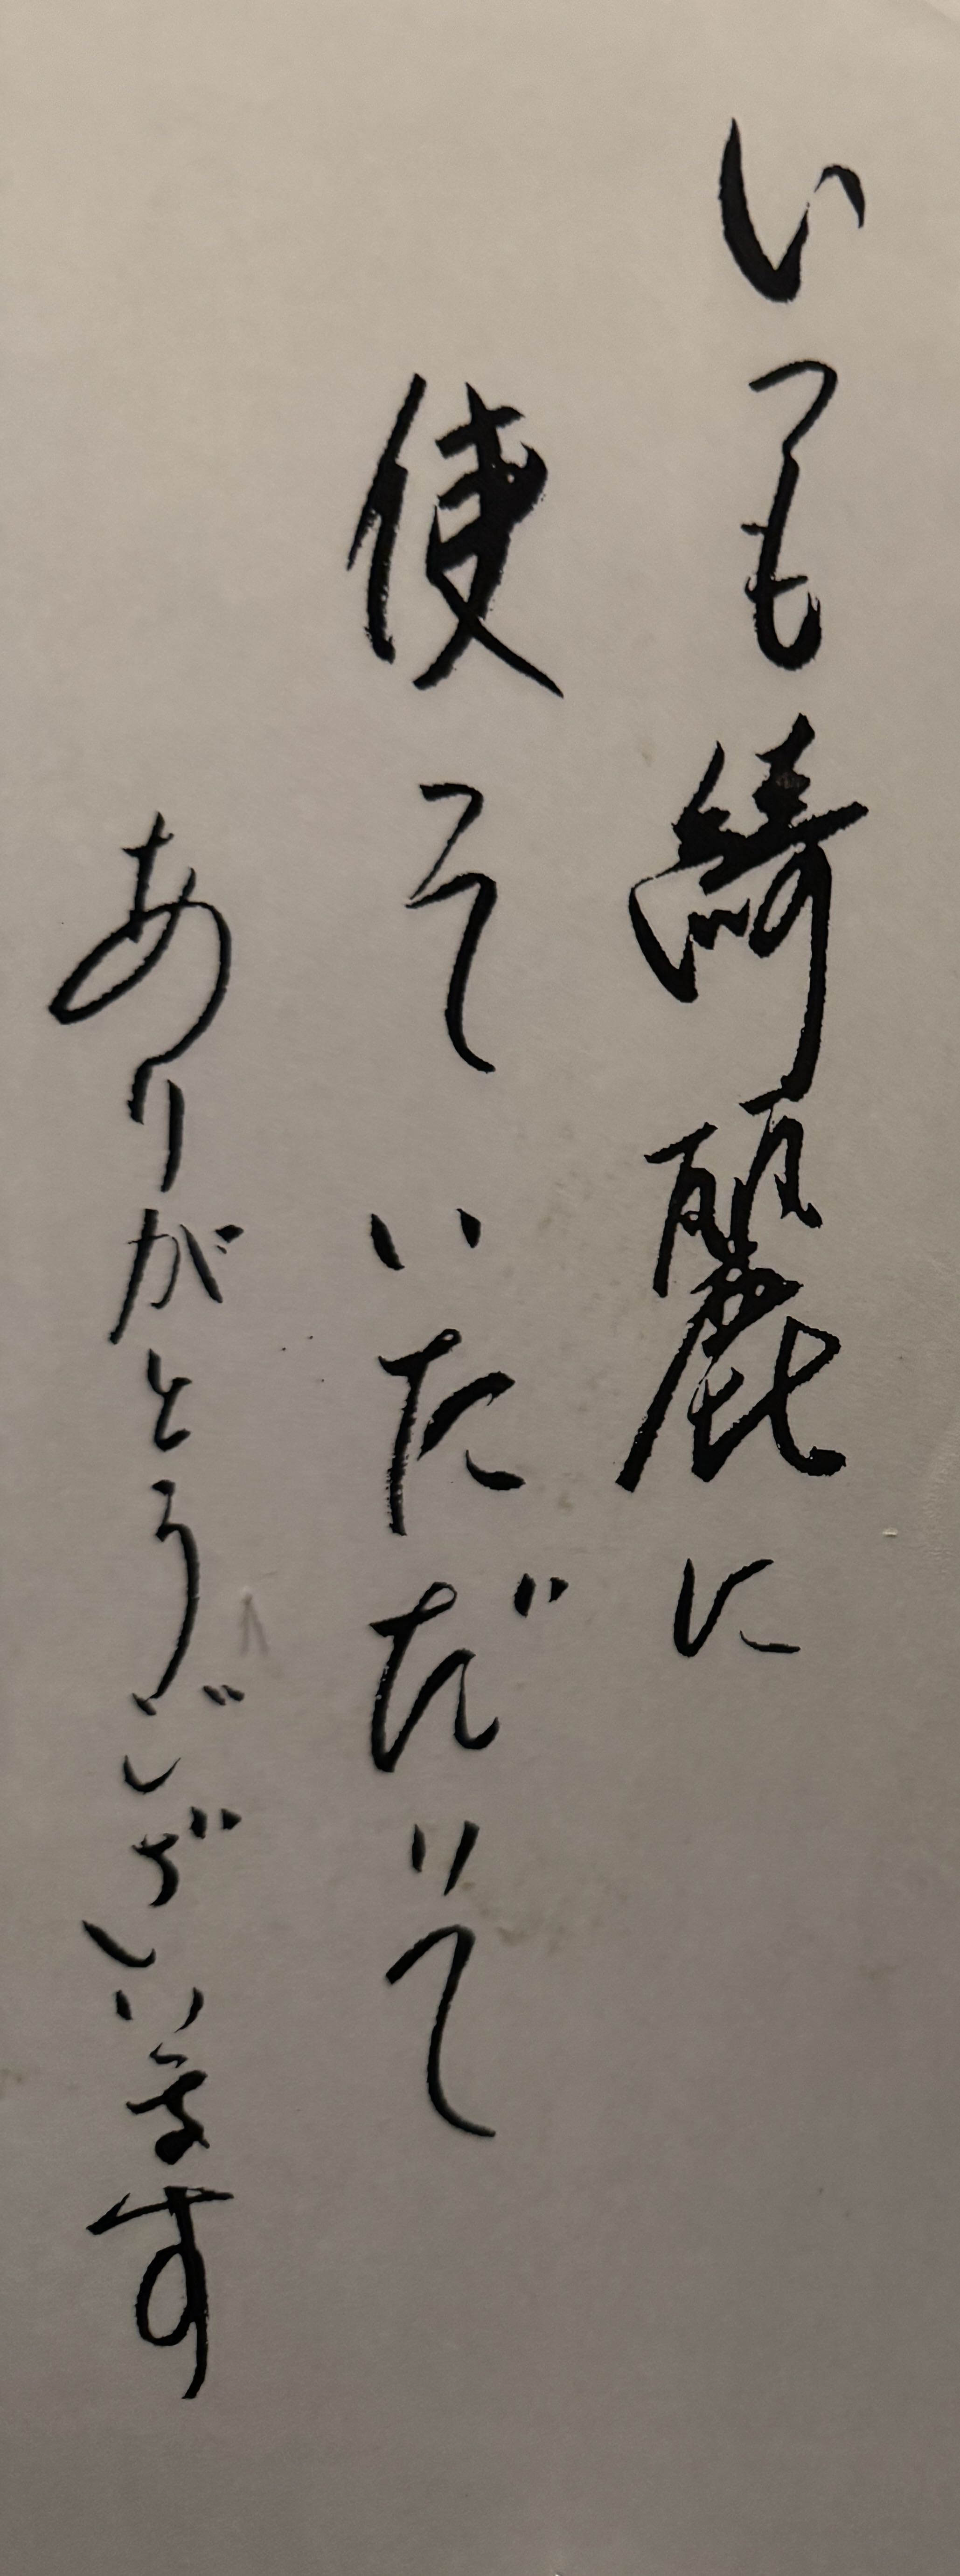 いつも綺麗に
使っていただいて
ありがとうございます